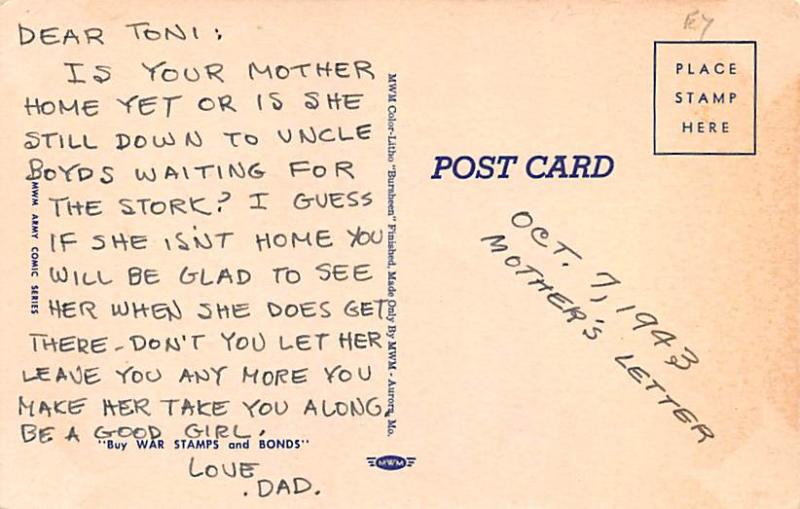 DEAR TONI:
IS YOUR MOTHER
HOME YET OR IS SHE
STILL DOWN TO UNCLE
BOYDS WAITING FOR
THE STORK? I GUESS
IF SHE ISN'T HOME YOU
WILL BE GLAD TO SEE
HER WHEN SHE DOES GET
THERE - DON'T YOU LET HER
LEAVE YOU ANY MORE YOU
MAKE HER TAKE YOU ALONG.
BE A GOOD GIRL.
LOVE
. DAD.
"Buy WAR STAMPS and BONDS"
MWM ARMY COMIC SERIES
MWM Color-Litho "Bursheen" Finished, Made Only By MWM - Aurora, Mo.
MWM
POST CARD
PLACE
STAMP
HERE
OCT. 7, 1943
MOTHER'S LETTER